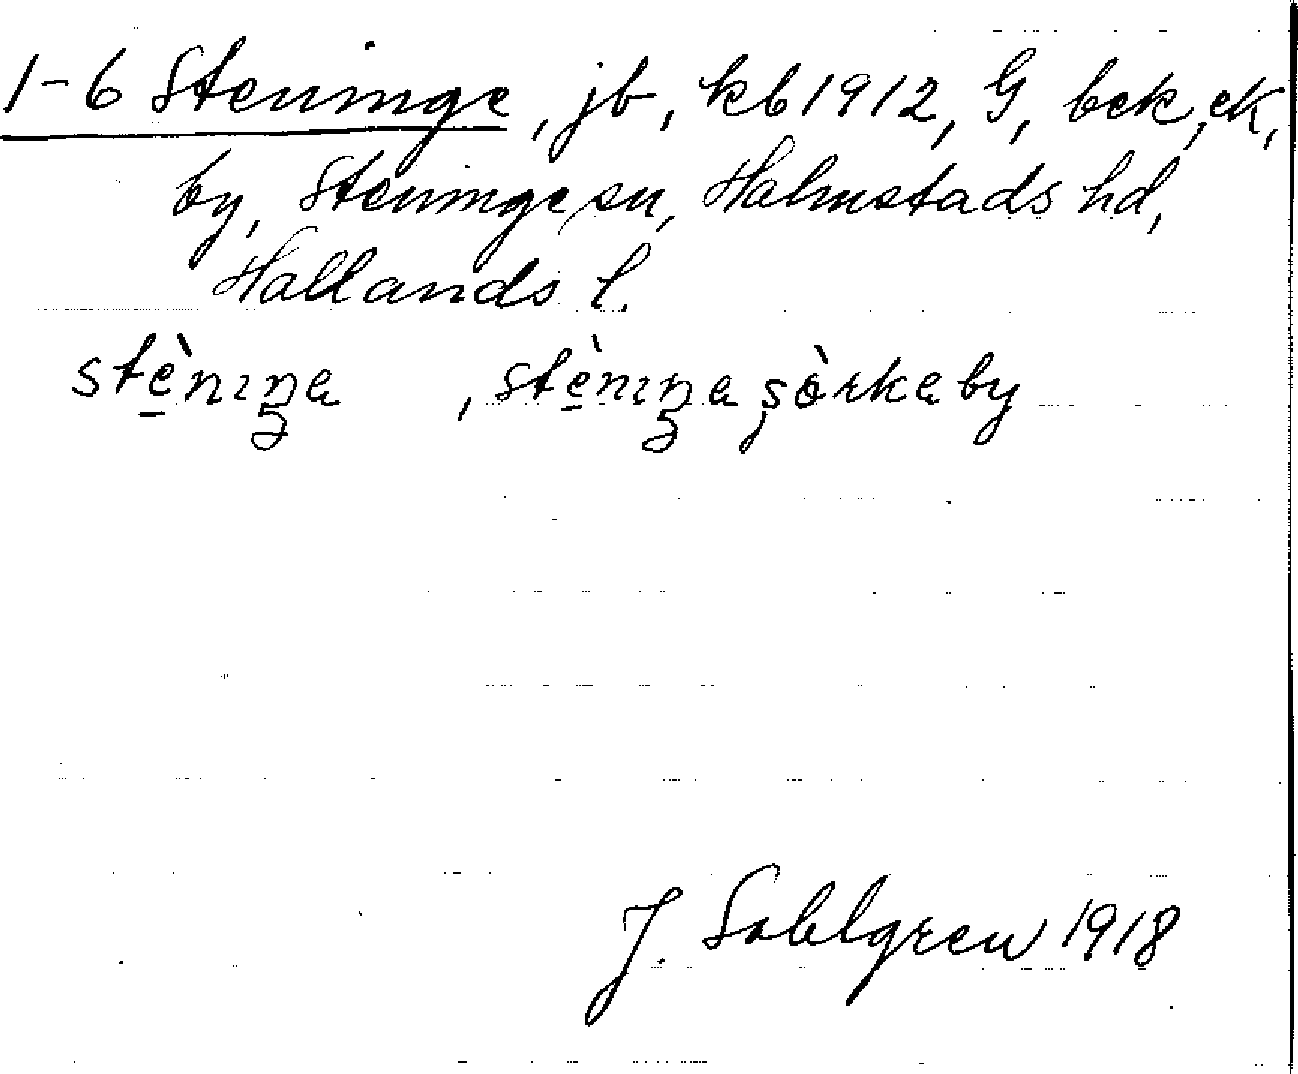 1-6 Steninge, jb, kb 1912, G, bek, ek,
by, Steninge sn, Halmstads hd,
Hallands l.
stè̱nıŋa , stè̱nıŋa şòrkaby
J. Sahlgren 1918